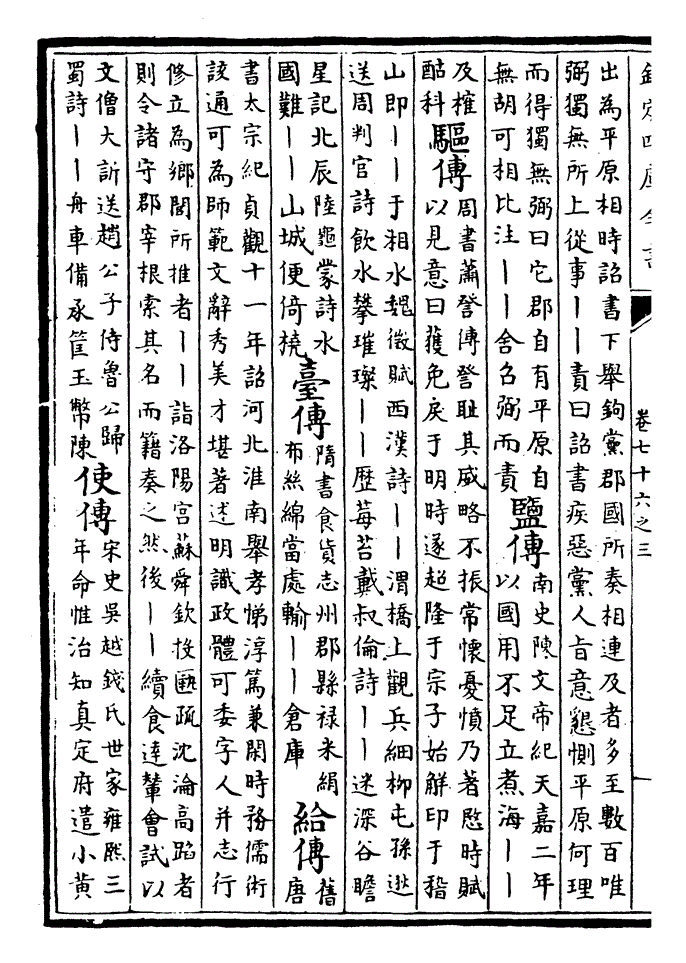 欽定四庫全書
卷七十六之三
出為平原相時詔書下舉鉤黨郡國所奏相連及者多至數百唯
弼獨無所上從事丨丨責曰詔書疾惡黨人旨意懇惻平原何理
而得獨無弼曰它郡自有平原自
無胡可相比注丨丨舍召弼而責
鹽傳
南史陳文帝紀天嘉二年
以國用不足立煮海丨丨
及榷
酤科
驅傳
周書蕭詧傳詧恥其威略不振常懷憂憤乃著愍時賦
以見意曰獲免戾于明時遂超隆于宗子始解印于稽
山即丨丨于湘水魏徵賦西漢詩丨丨渭橋上觀兵細柳屯孫逖
送周判官詩飲水攀璀璨丨丨歷莓苔戴叔倫詩丨丨迷深谷瞻
星記北辰陸龜蒙詩水
國難丨丨山城便倚橈
臺傳
隋書食貨志州郡縣祿米絹
布絲綿當處輸丨丨倉庫
給傳
舊
唐
書太宗紀貞觀十一年詔河北淮南舉孝悌淳篤兼閑時務儒術
該通可為師範文辭秀美才堪著述明識政體可委字人并志行
修立為鄉閭所推者丨丨詣洛陽宮蘇舜欽投匭疏沈淪高蹈者
則令諸守郡宰根索其名而籍奏之然後丨丨續食達輦會試以
文僧大訢送趙公子侍魯公歸
蜀詩丨丨舟車備承筐玉幣陳
使傳
宋史吳越錢氏世家雍熙三
年命惟治知真定府遣小黃